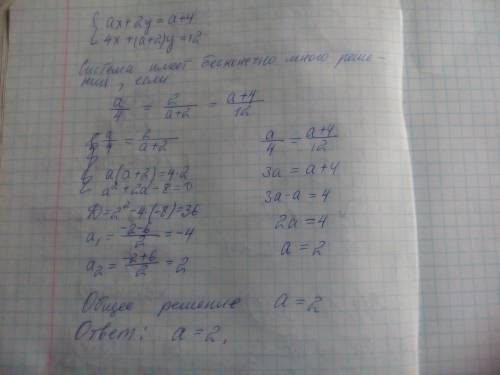 {ax+2y=a+4
{4x+(a+2)y=12
Система имеет бесконечно много реше-
ний, если
a/4 = 2/(a+2) = (a+4)/12
a/4 = 2/(a+2)
a(a+2)=4·2
a²+2a-8=0
D=2²-4·(-8)=36
a₁ = (-2-6)/2 = -4
a₂ = (-2+6)/2 = 2
a/4 = (a+4)/12
3a = a+4
3a-a = 4
2a = 4
a = 2
Общее решение a = 2
Ответ: a = 2.